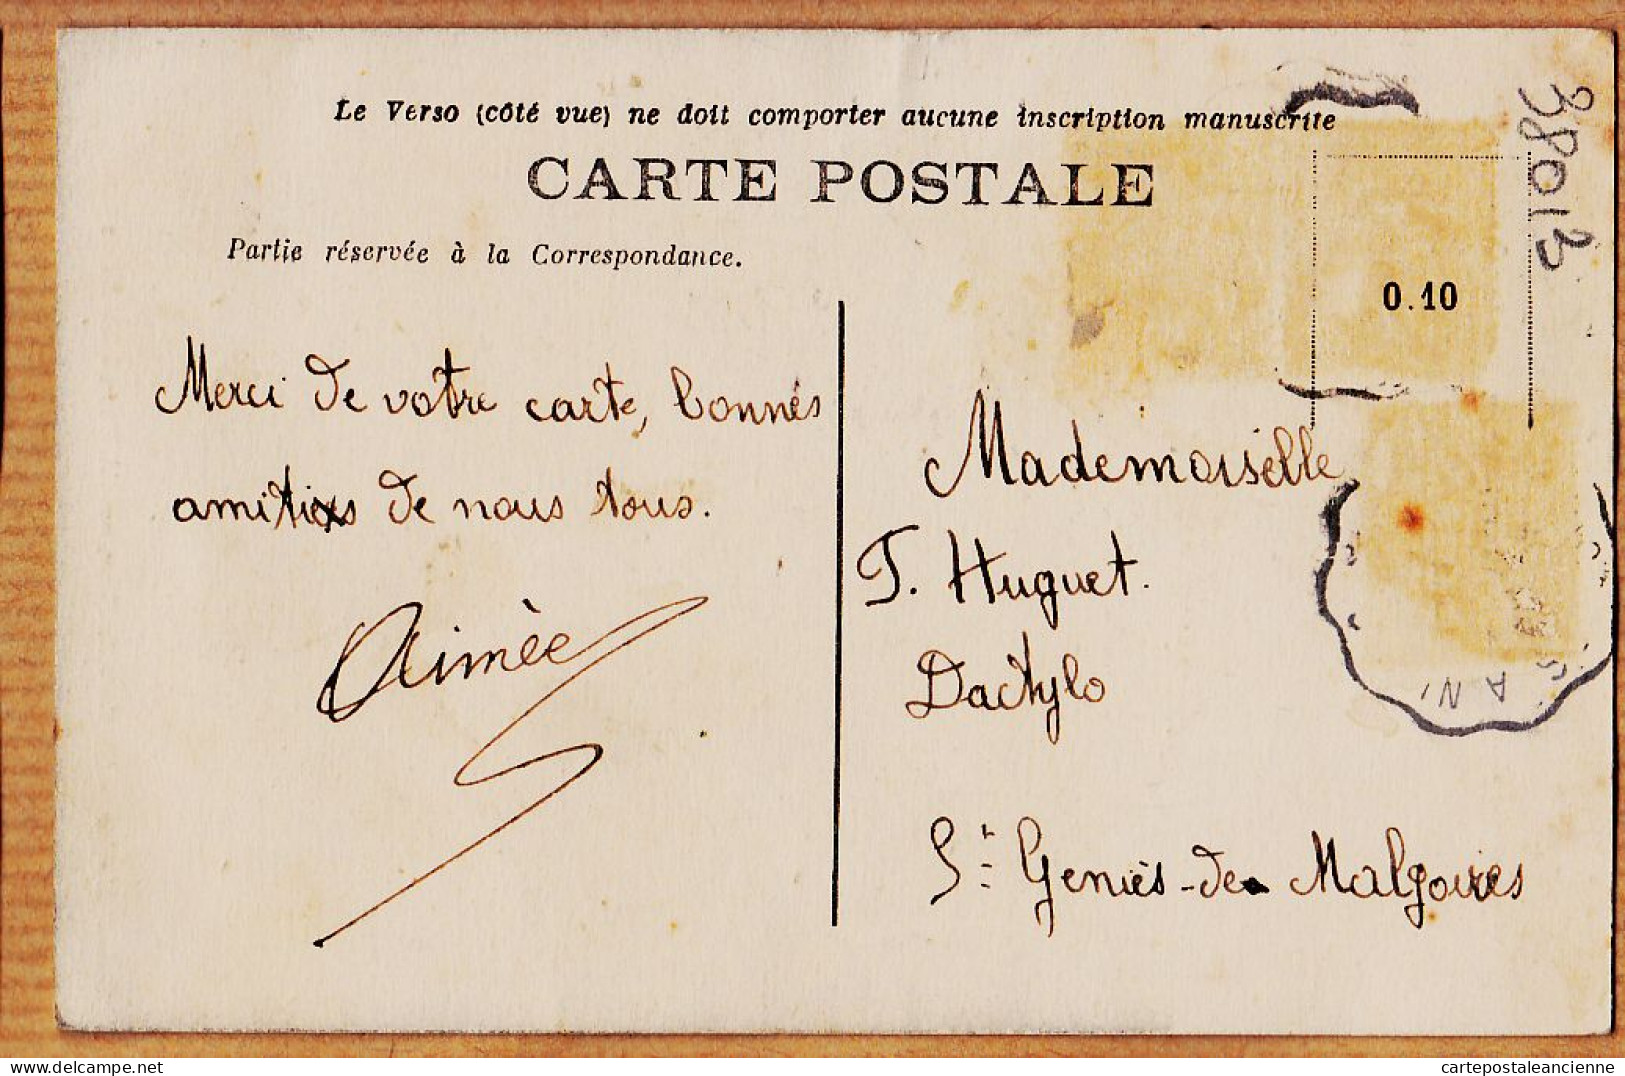 Le Verso (côté vue) ne doit comporter aucune inscription manuscrite
CARTE POSTALE
38013
Partie réservée à la Correspondance.
0.10
Merci de votre carte, bonnés
amitiés de nous tous.
Aimèe
Mademoiselle
T. Huguet.
Dactylo
St Geniès-de Malgoires
delcampe.net
cartepostaleancienne